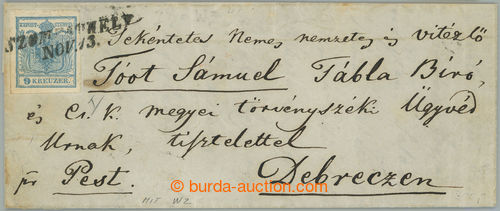 SZOMBATHELY
NOV. 13.
9 KREUZER
Tekéntetes Nemes nemzetes és vitézlő
Tóot Sámuel Tábla Biró,
és Cs. k. megyei törvényszéki Ügyvéd
Urnak, tisztelettel
pr Pest. Debreczen
burda-auction.com